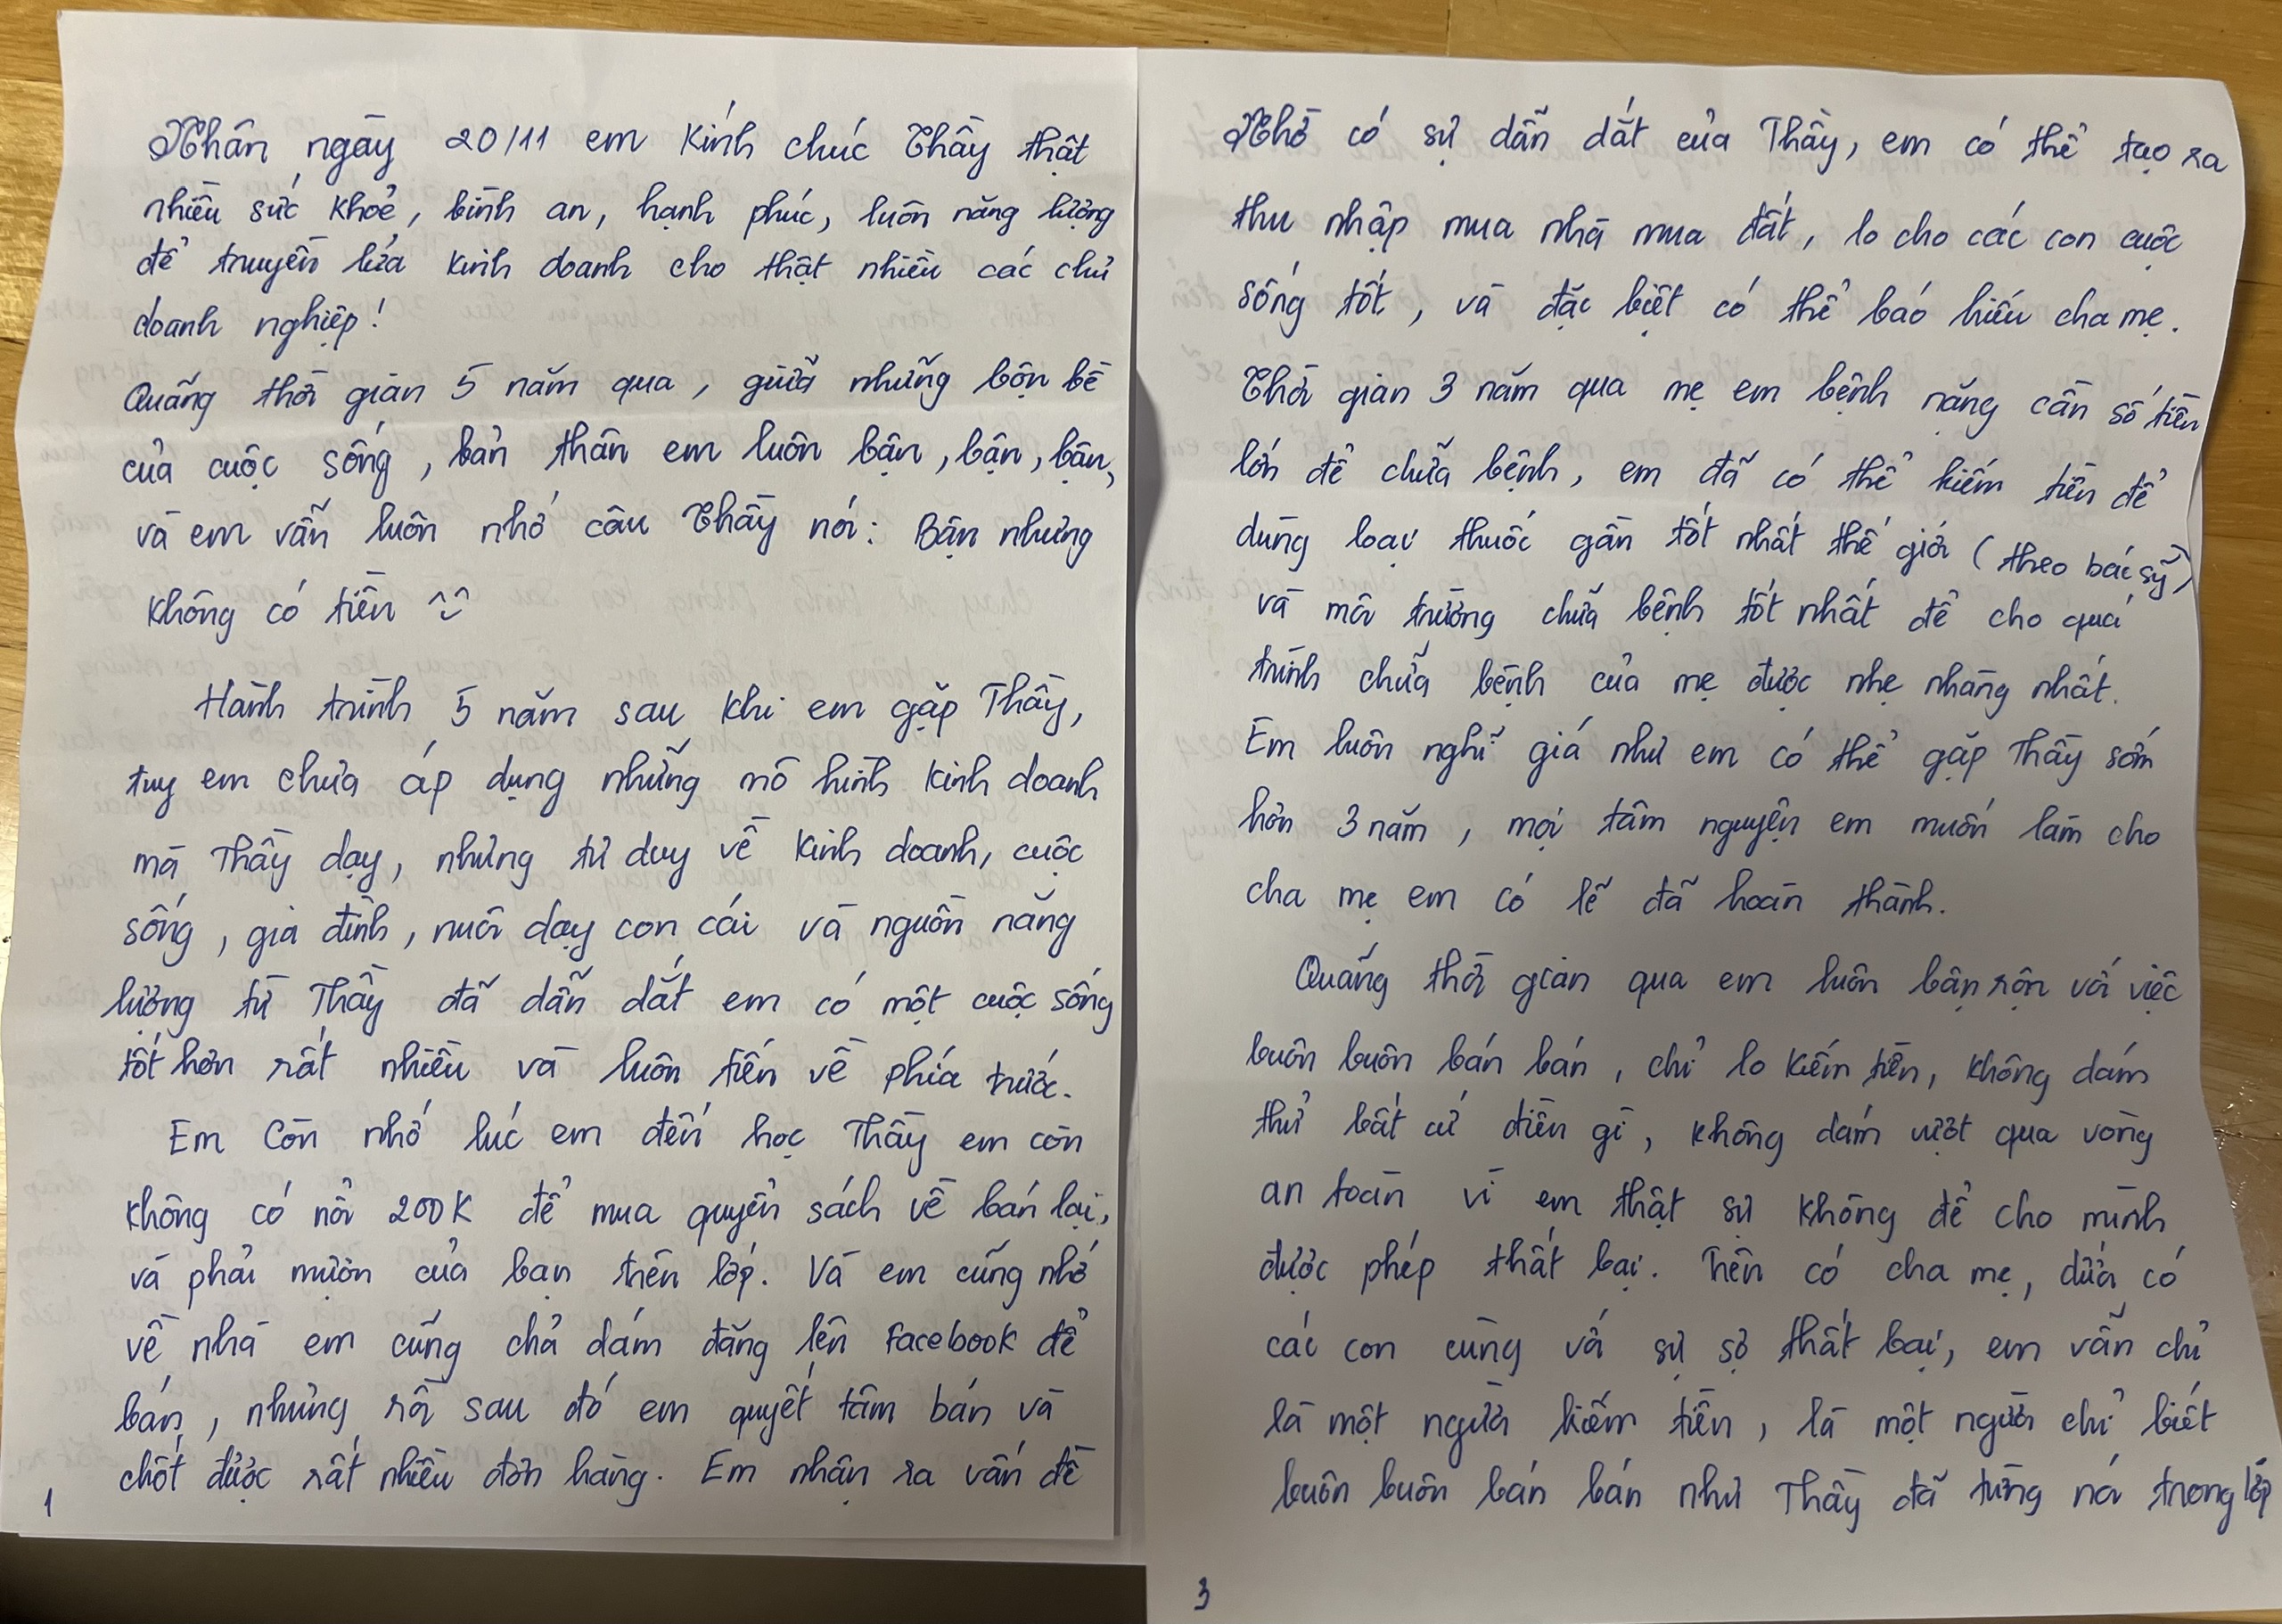 Nhân ngày 20/11 em kính chúc Thầy thật
nhiều sức khoẻ, bình an, hạnh phúc, luôn năng lượng
để truyền lửa kinh doanh cho thật nhiều các chủ
doanh nghiệp!
Quãng thời gian 5 năm qua, giữa những bộn bề
của cuộc sống, bản thân em luôn bận, bận, bận,
và em vẫn luôn nhớ câu Thầy nói: Bận nhưng
không có tiền ^^
Hành trình 5 năm sau khi em gặp Thầy,
tuy em chưa áp dụng những mô hình kinh doanh
mà Thầy dạy, nhưng tư duy về kinh doanh, cuộc
sống, gia đình, nuôi dạy con cái và nguồn năng
lượng từ Thầy đã dẫn dắt em có một cuộc sống
tốt hơn rất nhiều và luôn tiến về phía trước.
Em còn nhớ lúc em đến học Thầy em còn
không có nổi 200K để mua quyển sách về bán lại,
và phải mượn của bạn trên lớp. Và em cũng nhớ
về nhà em cũng chả dám đăng lên Facebook để
bán, nhưng rồi sau đó em quyết tâm bán và
chốt được rất nhiều đơn hàng. Em nhận ra vấn đề
1
Nhờ có sự dẫn dắt của Thầy, em có thể tạo ra
thu nhập mua nhà mua đất, lo cho các con cuộc
sống tốt, và đặc biệt có thể báo hiếu cha mẹ.
Thời gian 3 năm qua mẹ em bệnh nặng cần số tiền
lớn để chữa bệnh, em đã có thể kiếm tiền để
dùng loại thuốc gần tốt nhất thế giới (theo bác sỹ)
và môi trường chữa bệnh tốt nhất để cho quá
trình chữa bệnh của mẹ được nhẹ nhàng nhất.
Em luôn nghĩ giá như em có thể gặp Thầy sớm
hơn 3 năm, mọi tâm nguyện em muốn làm cho
cha mẹ em có lẽ đã hoàn thành.
Quãng thời gian qua em luôn bận rộn với việc
buôn buôn bán bán, chỉ lo kiếm tiền, không dám
thử bất cứ điều gì, không dám vượt qua vòng
an toàn vì em thật sự không để cho mình
được phép thất bại. Trên có cha mẹ, dưới có
các con cùng với sự sợ thất bại, em vẫn chỉ
là một người kiếm tiền, là một người chỉ biết
buôn buôn bán bán như Thầy đã từng nói trong lớp
3